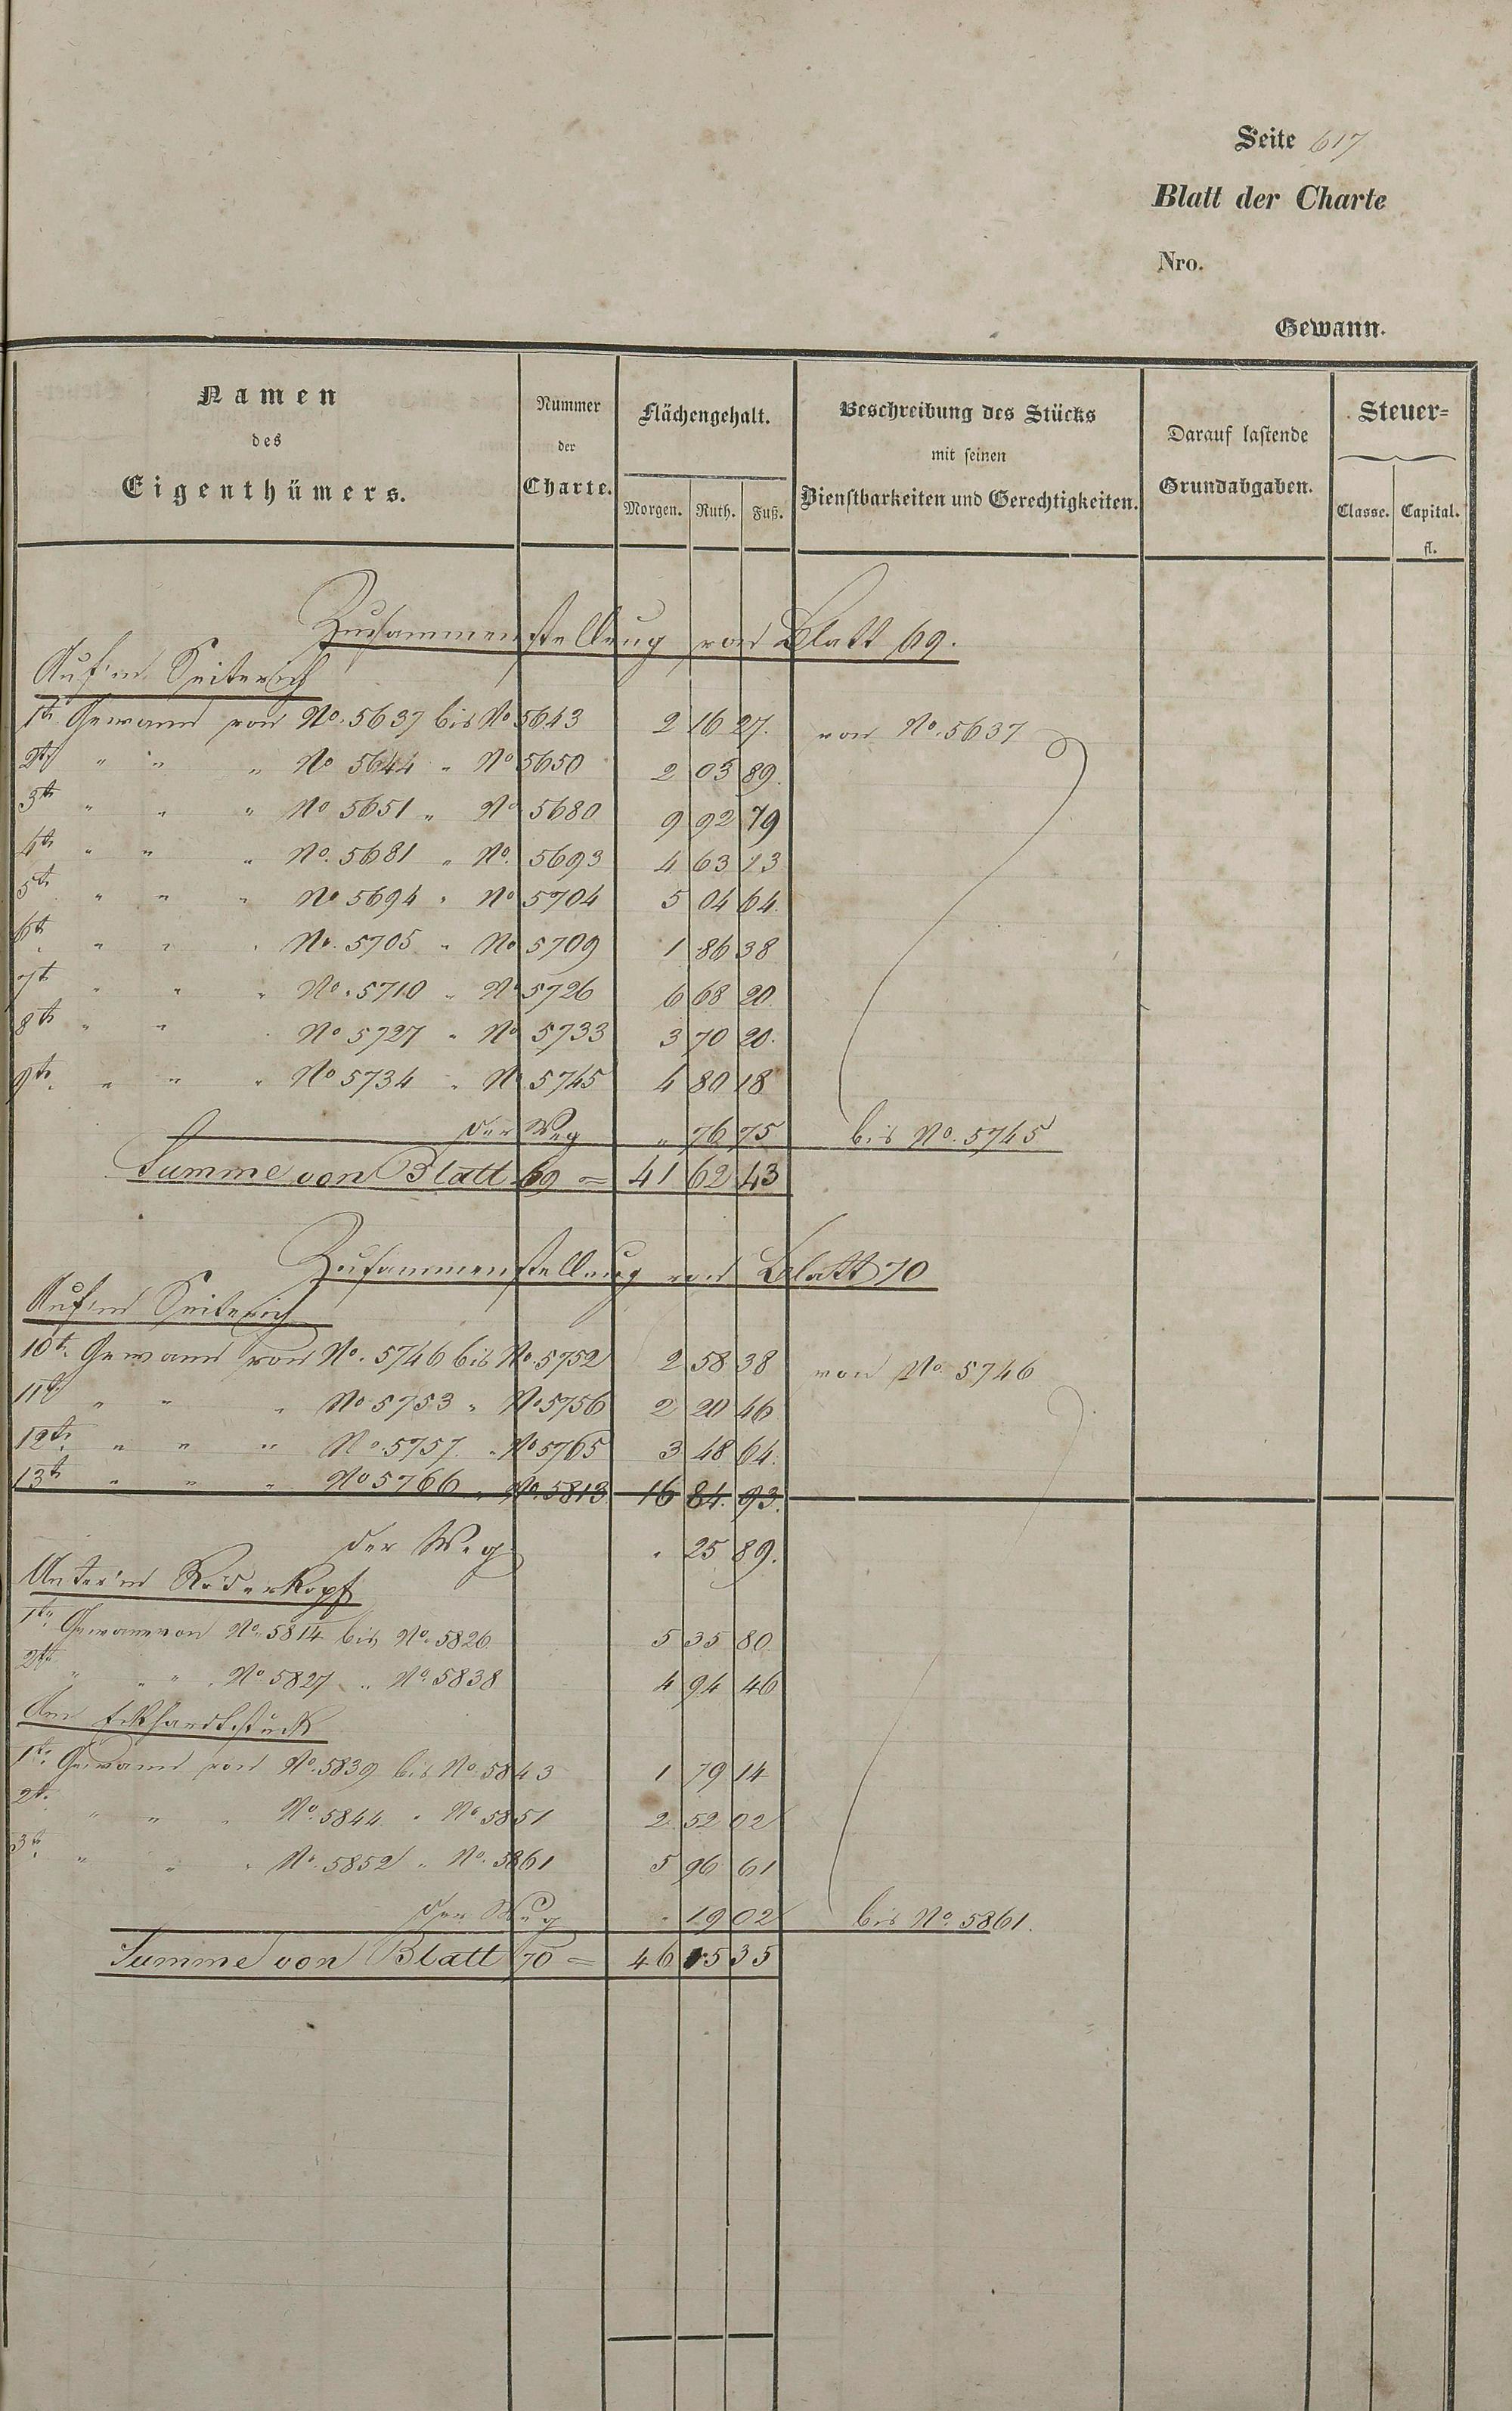 Seite 617
Blatt der Charte
Nro.
Gewann.
Namen des Eigenthümers. Nummer der Charte. Flächengehalt. Morgen. Ruth. Fuß. Beschreibung des Stücks mit seinen Dienstbarkeiten und Gerechtigkeiten. Darauf lastende Grundabgaben. Steuer= Classe. Capital. fl.
Zusammenstellung von Blatt 69.
Auf'm Seiterich
1te Gewann von No. 5637 bis No 5643 2 16 27. von No. 5637
2te " " " No 5644 " No 5650 2 03 89.
3te " " " No 5651 " No 5680 9 92 79
4te " " " No. 5681 " No. 5693 4 63 13
5te " " " No 5694 " No 5704 5 04 64.
6te " " " No. 5705 " No 5709 1 86 38
7te " " " No. 5710 " No 5726 6 68 20.
8te " " " No 5727 " No 5733 3 70 20.
9te " " " No 5734 " No 5745 4 80 18
der Weg " 76 75 bis No. 5745
Summe von Blatt 69 = 41 62 43
Zusammenstellung von Blatt 70
Auf'm Seiterich
10te Gewann von No. 5746 bis No. 5752 2 58 38 von No. 5746
11te " " " No 5753 " No 5756 2 20 46
12te " " " No 5757 " No 5765 3 48 64.
13te " " " No 5766 " No. 5813 16 84. 93.
der Weg " 25 89.
Unter'm Röderkopf
1te Gewann von No. 5814 bis No. 5826 5 35 80
2te " " " No 5827 " No. 5838 4 94 46
Am
1te Gewann von No. 5839 bis No. 5843 1 79 14
2te " " " No. 5844 " No 5851 2 52 02
3te " " " No. 5852 " No. 5861 5 96 61
der Weg " 19 02 bis No. 5861.
Summe von Blatt 70 = 46 15 35